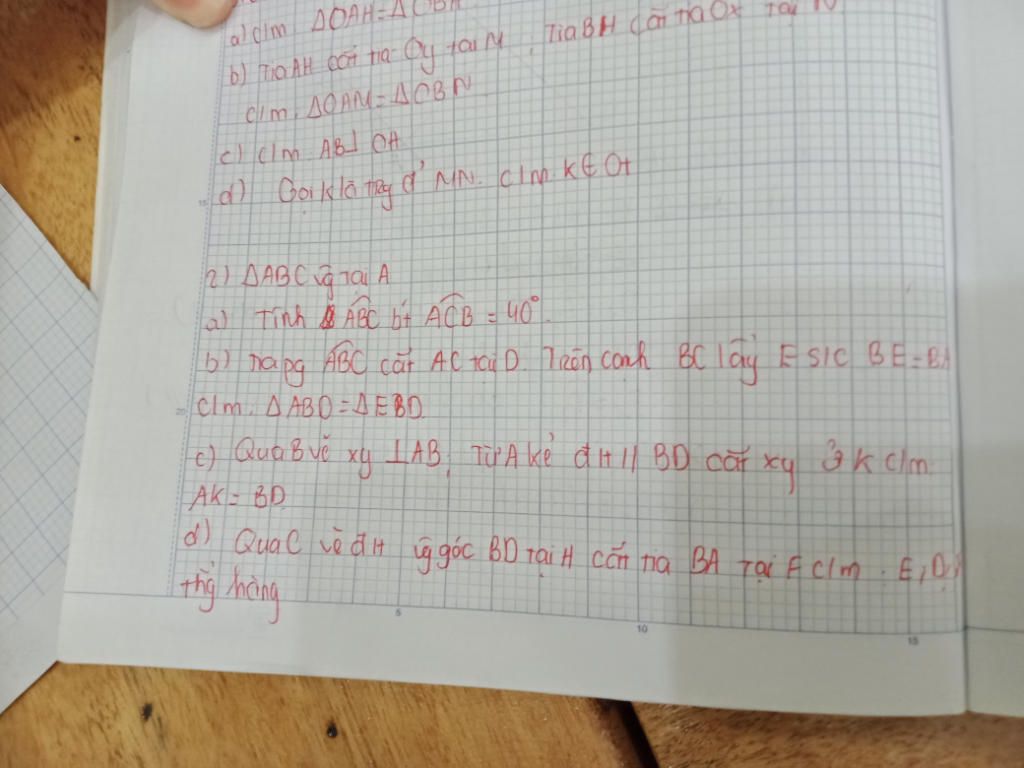 a) c/m ΔOAH = ΔOBH
b) Tia AH cắt tia Oy tại M, Tia BH cắt tia Ox tại N
c/m. ΔOAM = ΔOBN
c) c/m AB⊥OH
d) Gọi K là trg đ' MN. c/m K∈Ot
2) ΔABC vg tại A
a) Tính ABC bt ACB = 40°.
b) Tia pg ABC cắt AC tại D. Trên cạnh BC lấy E s/c BE=BA
c/m. ΔABD = ΔEBD
c) Qua B vẽ xy ⊥AB, Từ A kẻ đH // BD cắt xy ở K c/m
AK = BD
d) Qua C vẽ đH vg góc BD tại H cắt tia BA tại F c/m. E, D,
thg hàng
5
10
15
15
20